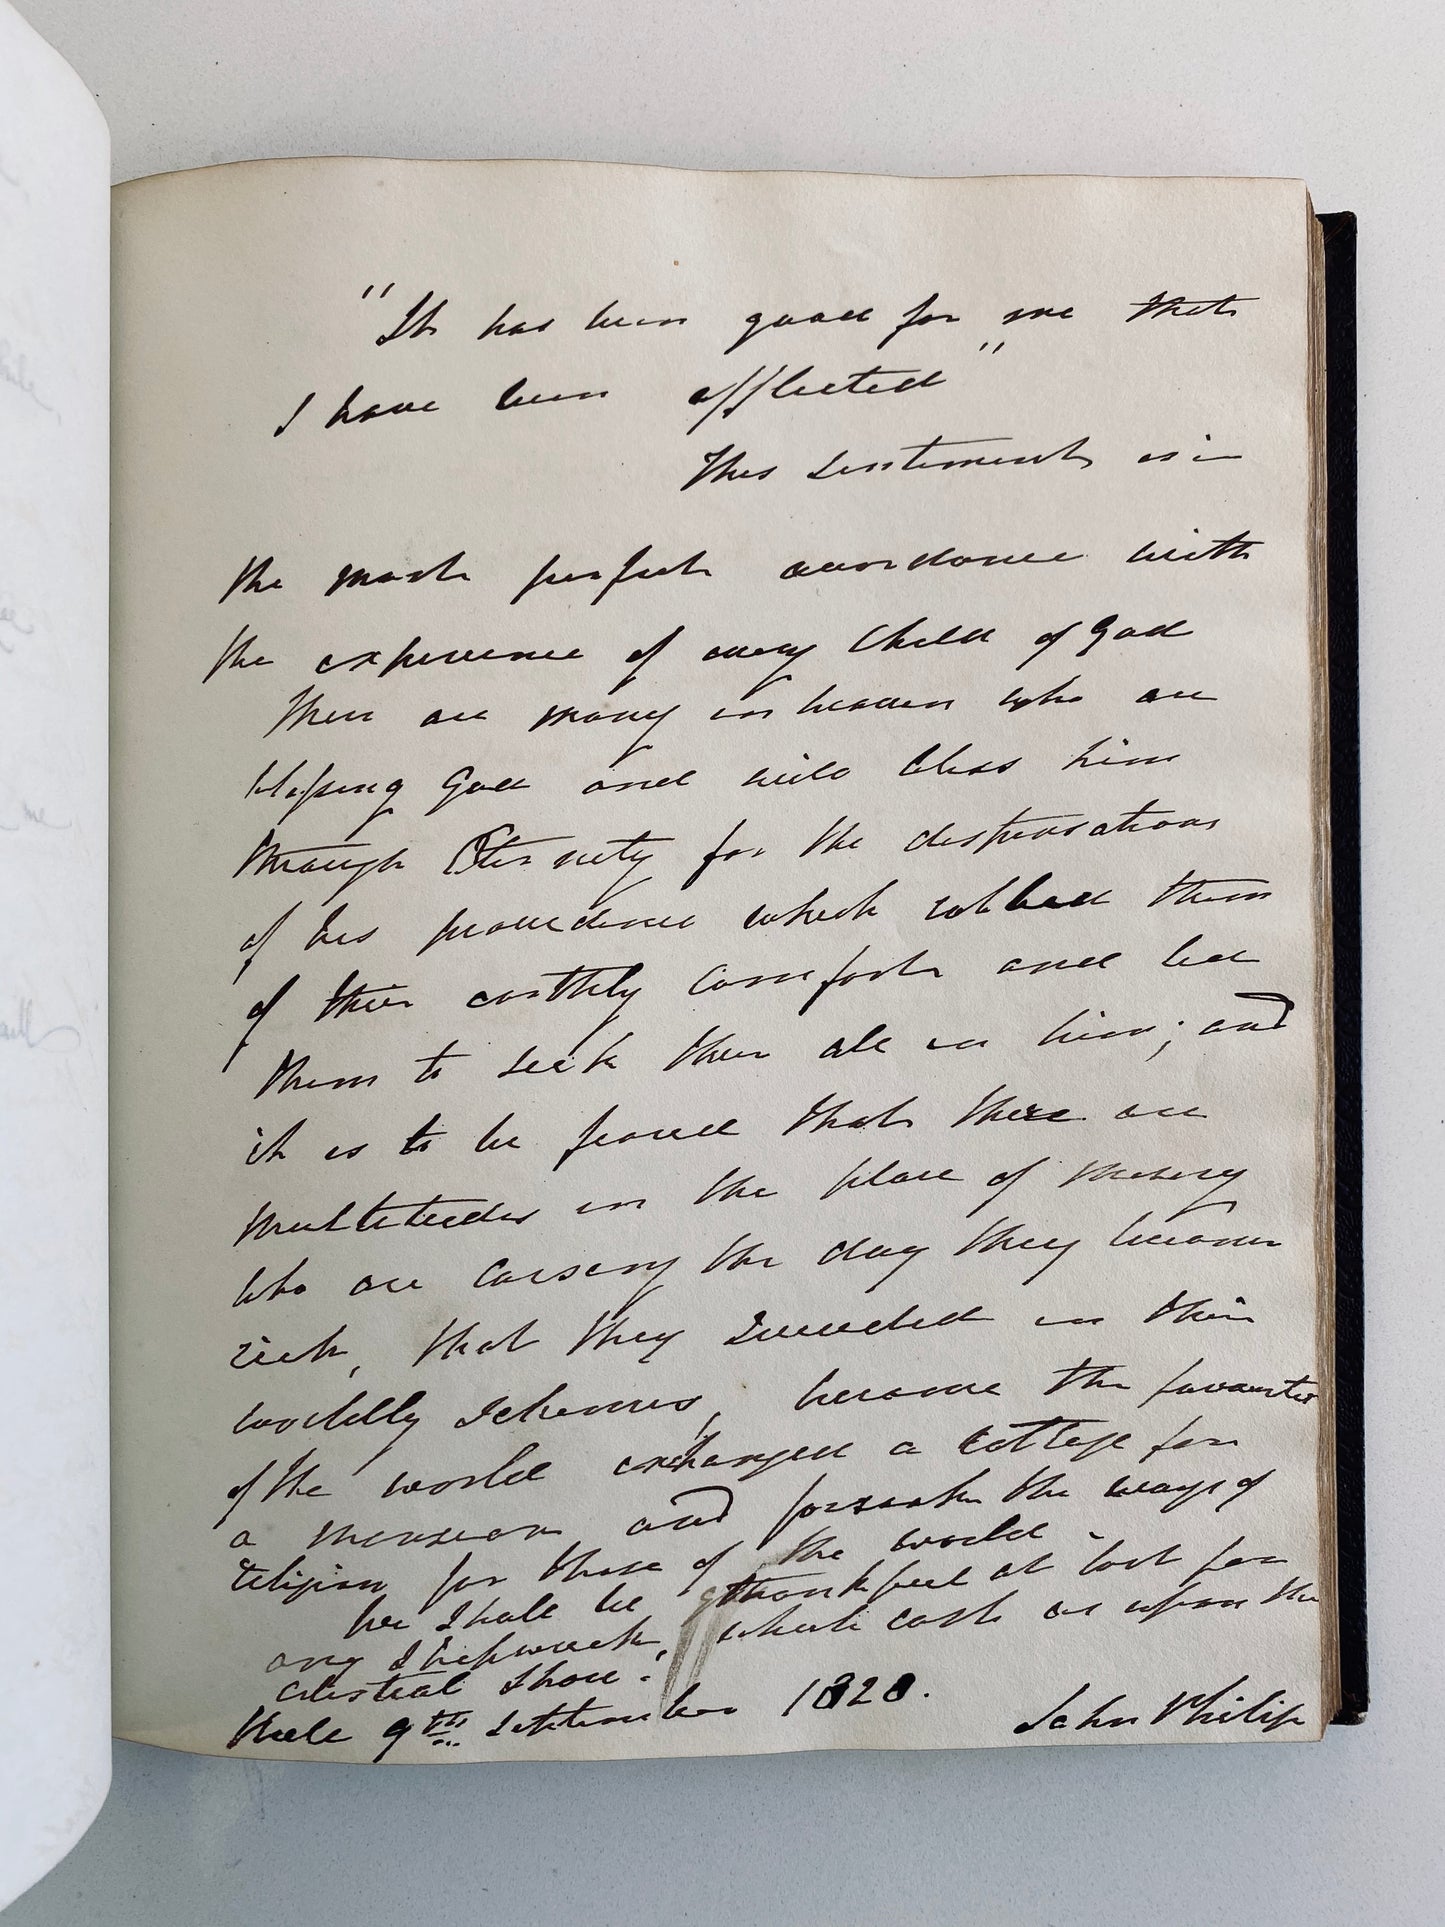 "It has been good for me that
I have been afflicted"
This sentiment is in
the most perfect accordance with
the experience of every Child of God
There are many in heaven who are
blessing God and will bless him
through Eternity for the dispensations
of his providence which robbed them
of their earthly comforts and led
them to seek their all in him; and
it is to be feared that there are
multitudes in the place of misery
who are cursing the day they became
rich, that they succeeded in their
worldly schemes, became the favourites
of the world exchanged a cottage for
a mansion and forsook the ways of
religion for those of the world.
We shall be thankful at last for
any Shipwreck, which casts us upon the
celestial Shore.
9th September 1828.
John Philip